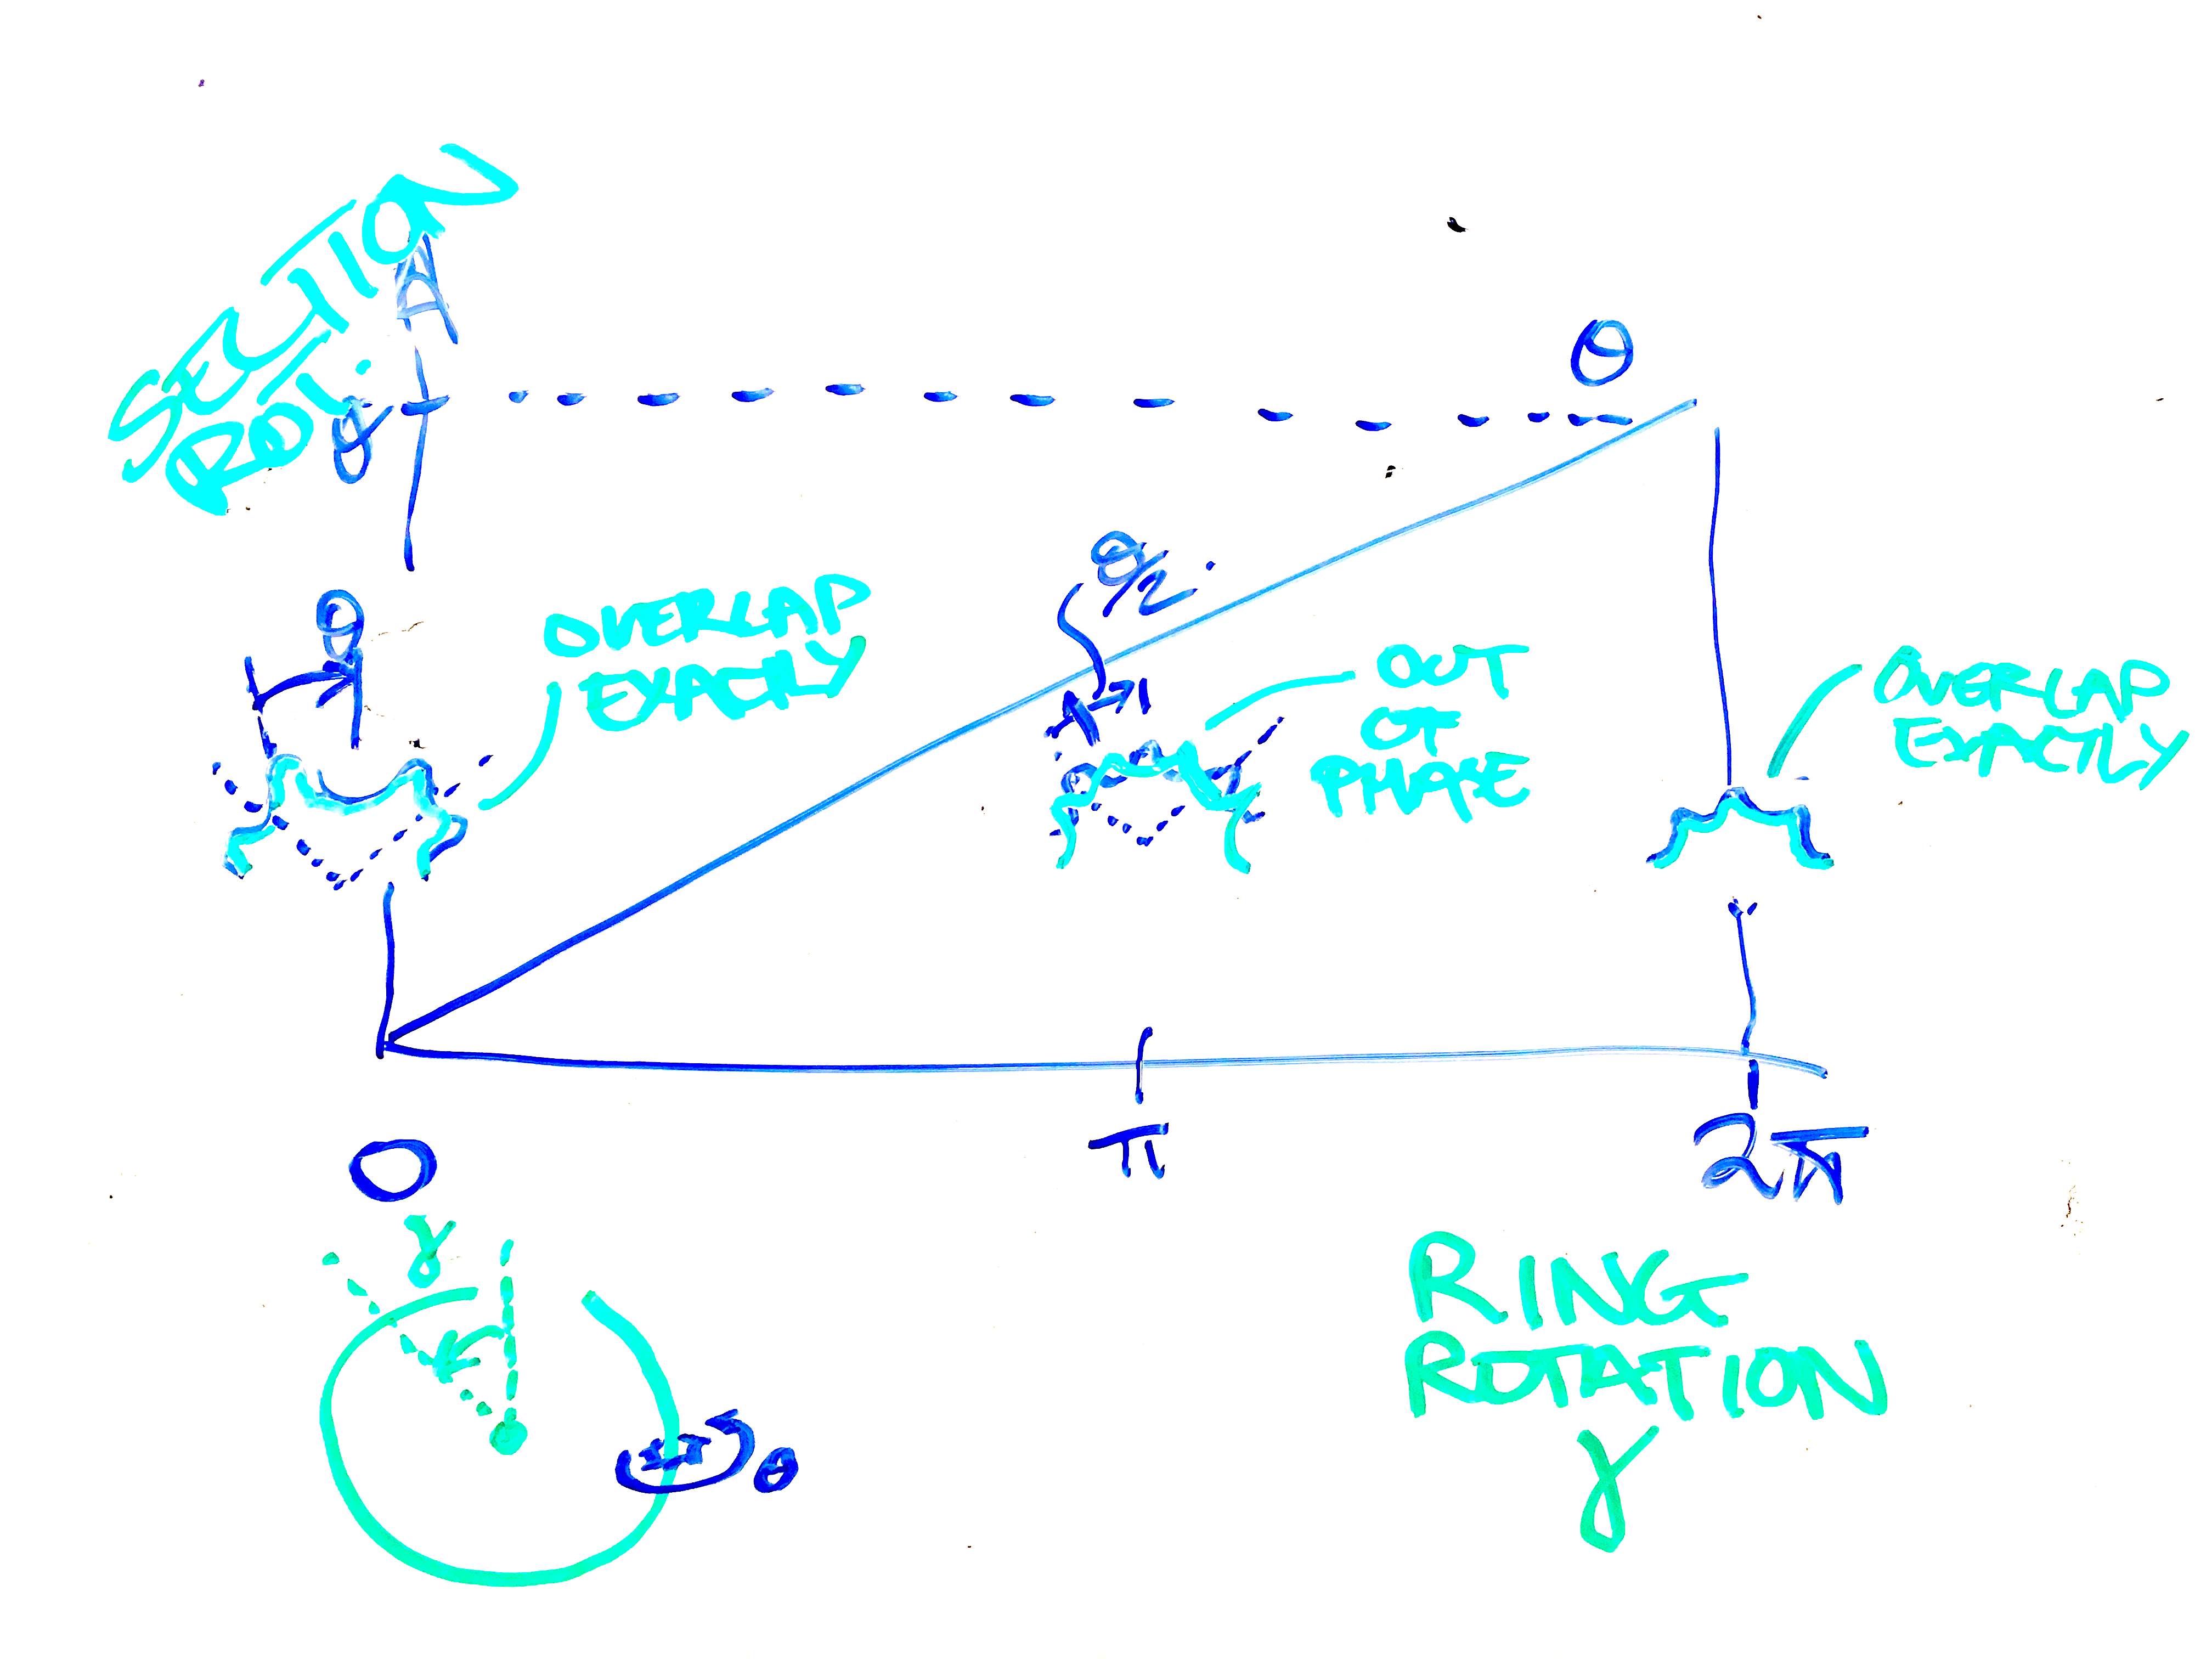 SECTION
ROLL
θ
θ
θ
OVERLAP
EXACTLY
θ/2
OUT
OF
PHASE
OVERLAP
EXACTLY
0
π
2π
γ
θ
RING
ROTATION
γ